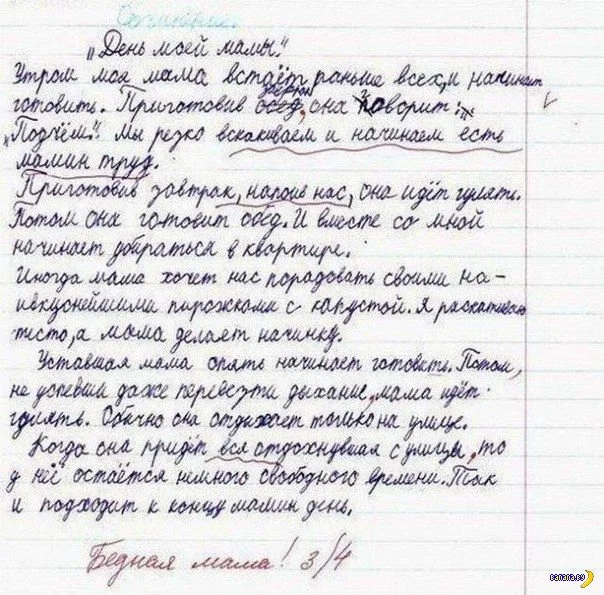 Сочинение.
„День моей мамы."
Утром моя мама встаёт раньше всех, и начинает
готовить. Приготовив завтрак, она говорит:
„Подъём." Мы резко вскакиваем и начинаем есть
мамин труд.
Приготовив завтрак, напоив нас, она идёт гулять.
Потом она готовит обед. И вместе со мной
начинает убираться в квартире.
Иногда мама хочет нас порадовать своими на-
ивкуснейшими пирожками с капустой. Я раскатываю
тесто, а мама делает начинку.
Уставшая мама опять начинает готовить. Потом,
не успевши даже перевезти дыхание, мама идёт
гулять. Обычно она отдыхает только на улице.
Когда она придёт вся отдохнувшая с улицы, то
у неё остаётся немного свободного времени. Так
и подходит к концу мамин день.
Бедная мама! 3/4
banana.by